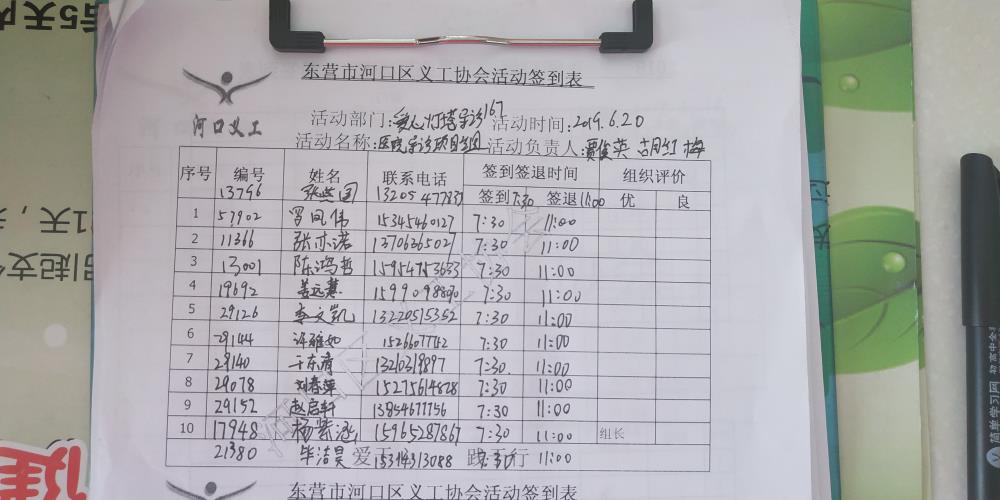 东营市河口区义工协会活动签到表
河口义工
活动部门:爱心灯塔导诊167 活动时间:2019.6.20
活动名称:医院导诊项目组 活动负责人:
序号 编号 姓名 联系电话 签到签退时间 组织评价
13796 13205477837 签到7:30 签退11:00 优 良
1 57902 罗凤伟 15345460127 7:30 11:00
2 11366 张亦诺 13706365027 7:30 11:00
3 13001 陈鸿哲 15954753633 7:30 11:00
4 19692 姜远慧 15990988090 7:30 11:00
5 29126 李文凯 13220515352 7:30 11:00
6 29144 许雅如 15266077742 7:30 11:00
7 29140 于东清 13210319897 7:30 11:00
8 29078 刘春萍 15275614828 7:30 11:00
9 29152 赵启轩 13854677756 7:30 11:00
10 17948 杨紫涵 15965287867 7:30 11:00 组长
21380 毕洁昊 15314313088 7:30 11:00
东营市河口区义工协会活动签到表